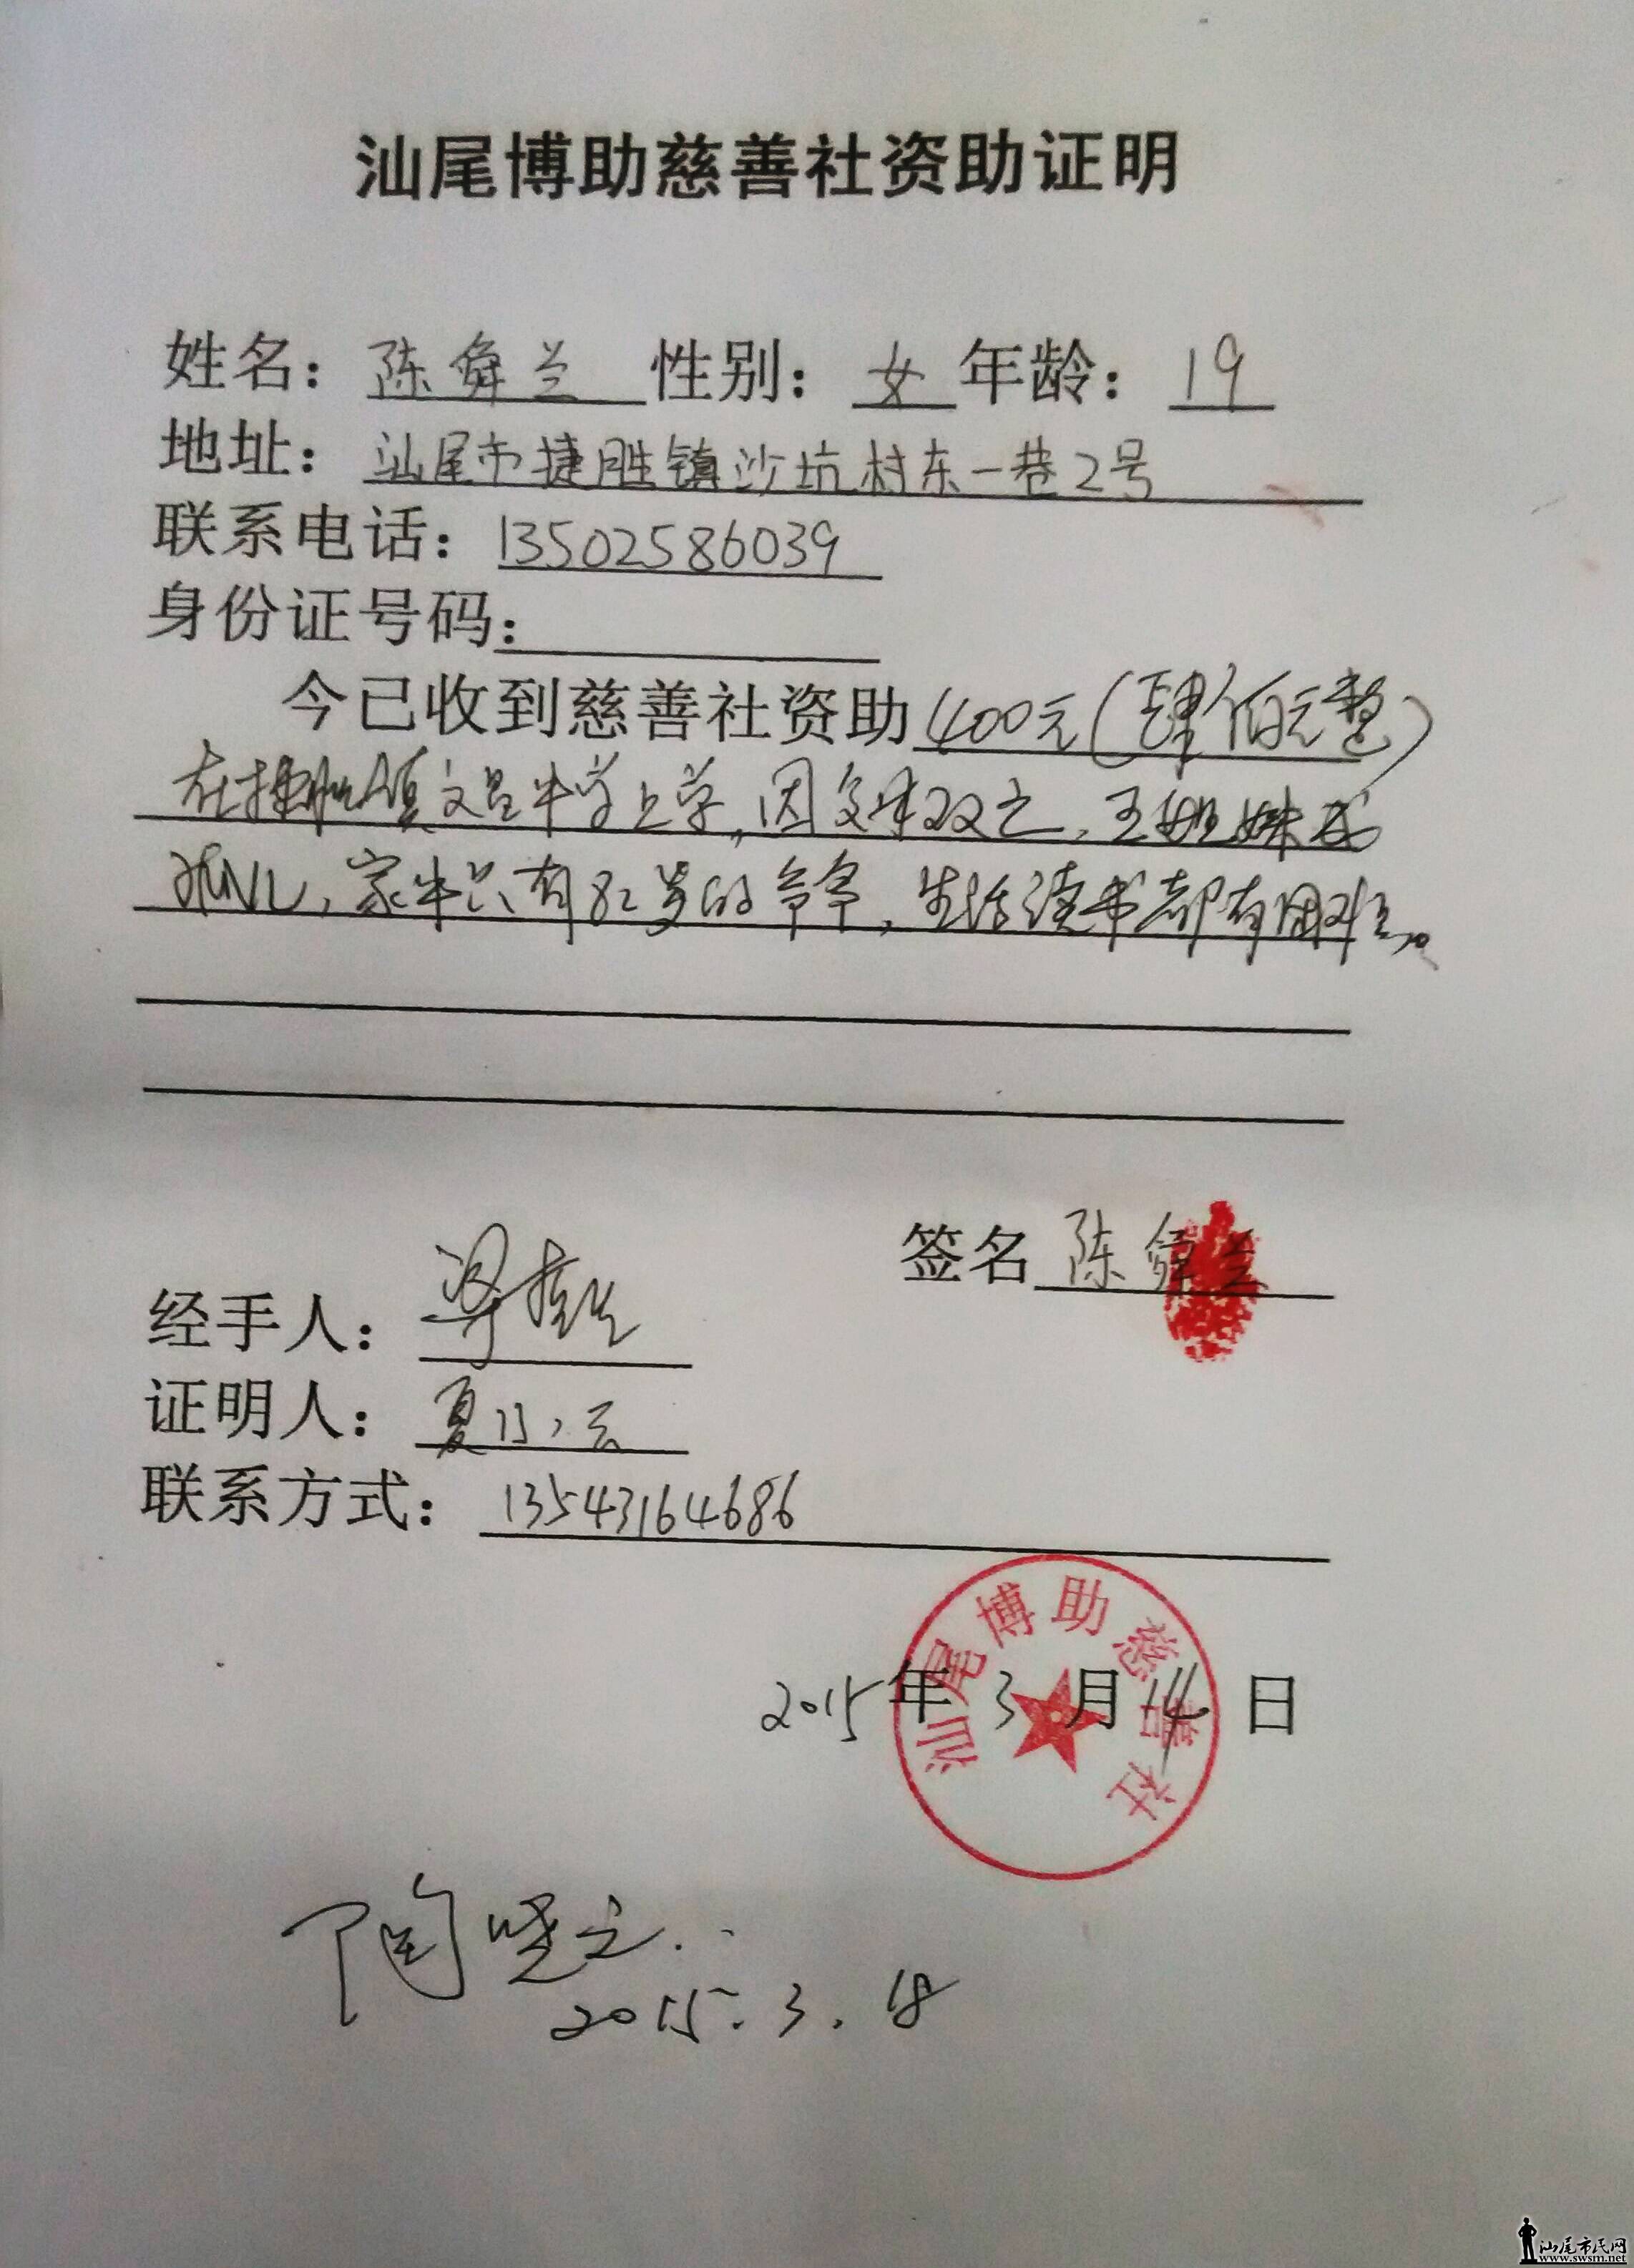 汕尾博助慈善社资助证明
姓名：陈舜兰 性别：女 年龄：19
地址：汕尾市捷胜镇沙坑村东一巷2号
联系电话：13502586039
身份证号码：
今已收到慈善社资助400元（肆佰元整）
在捷胜镇文昌中学上学，因父母双亡，五姐妹成
孤儿，家中只有82岁的爷爷，生活读书都有困难。
签名 陈舜兰
经手人：
证明人：夏小云
联系方式：13543164686
汕尾博助慈善社
2015年3月14日
陶
2015.3.18
汕尾市民网
www.swsm.net